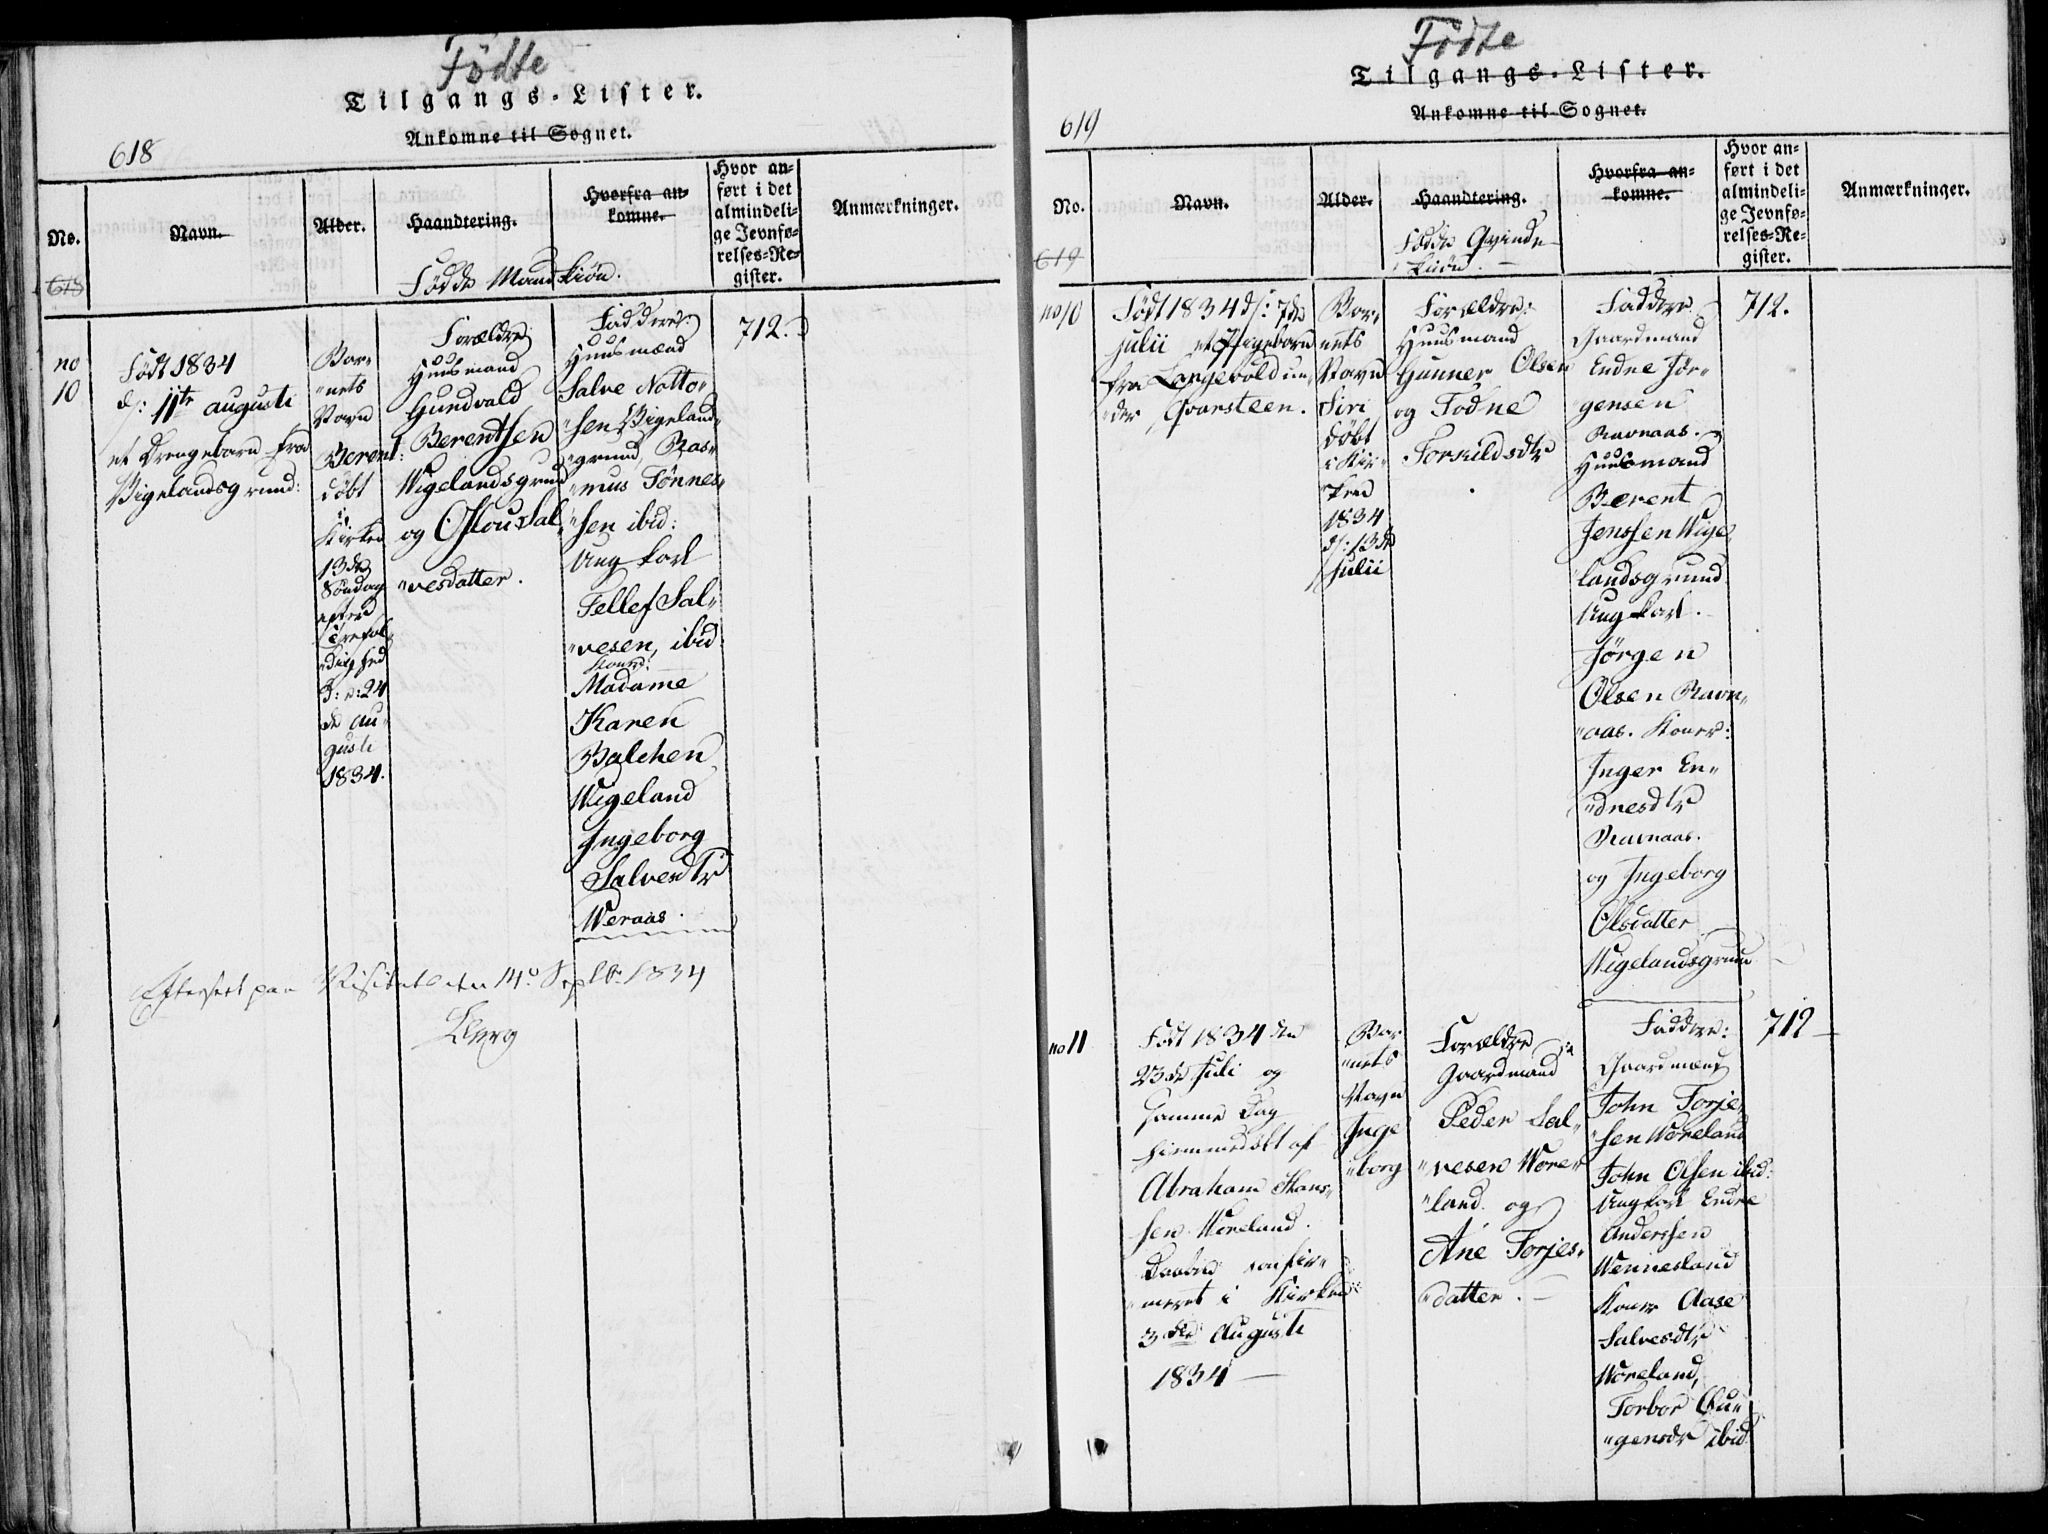 Födte
Tilgangs-Lister.
Ankomne til Sognet.
618
No.
Navn.
Alder.
Haandtering.
Hvorfra an-
komne.
Hvor an-
ført i det
almindeli-
ge Jevnfø-
relses-Re-
gister.
Anmærkninger.
618
Födde Mandkiön.
no
10
Födt 1834
d: 11te augusti
et Drengebarn fra
Vigelandsgrund:
Bar-
"nets
Navn
Berent:
döbt
i
Kirken
13de
Söndag
efter
Trefol
"dighed
d: 24
de au-
gusti
1834.
Forældre
Huusmand
Gundvald
Berentsen
Wigelandsgrund
og Oslou Sal
"vesdatter.
Faddere:
Huusmænd
Salve Notto-
"sen Vigeland-
"grund, Ras-
"mus Tönnes-
"sen ibid:
Ungkarl
Tellef Sal-
"vesen, ibid:
Koner:
Madame
Karen
Balchen
Wigeland
Ingeborg
Salvesdtr
Weraas.
712.
Efterseet paa Visitats den 14de Septbr 1834
Födte
Tilgangs-Lister.
Ankomne til Sognet.
619
No.
Navn.
Alder.
Haandtering.
Hvorfra an-
komne.
Hvor an-
ført i det
almindeli-
ge Jevnfø-
relses-Re-
gister.
Anmærkninger.
619
Födde Qvinde-
kiön.
no 10
Födt 1834 d: 7de
julii et Pigebarn
fra Langevold un-
"der Qvarsteen.
Bar-
nets
Navn
Siri
döbt
i Kir-
"ken
1834
d: 13de
julii
Forældre:
Huusmand
Gunner Olsen
og Todne
Torkildsdtr
Faddere
Gaardmand
Endre Jör-
"gensen
Ravnaas.
Huusmand
Berent
Jenssen Wige
landsgrund
Ungkarl.
Jörgen
Olsen Ravn-
"aas. Koner:
Inger En-
"dresdtr
Ravnaas.
og Ingeborg
Olsdatter
Wigelandsgrun
712.
no 11
Födt 1834 den
23de Juli og
samme Dag
hiemmedöbt af
Abraham Hans-
sen Woreland.
Daaben confir-
"meret i Kirken
3die Augusti
1834
Bar
"nets
Navn
Inge
"borg
Forældre
Gaardmand
Peder Sal-
"vesen Wore-
"land og
Ane Torjes-
"datter.
Faddere:
Gaardmænd
John Torje-
"sen Woreland
John Olsen ibid:
Ungkarl Endre
Anderssen
Wennesland
Koner Aase
Salvesdtr
Woreland,
Torbor Au-
"gensdr ibid
712